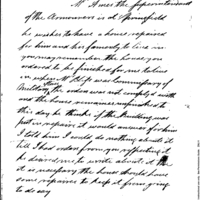 Mr Ames the Superintendent
of the Armourers at Springfield
he wishes to have a house repaired
for him and his famerly to live in
you may remember the house you
ordered to be finished for me to live
in when Mr was Commissary of
Military the orders was not comply'd with
and the house remaines unfinished to
this day he thinks if the building was
put in repaire it would answer for him
I told him I could do nothing about it
till I had orders from you respecting it
he desired me to write about it
it is necessary the house should have
some repaires to keep it from going
to decay